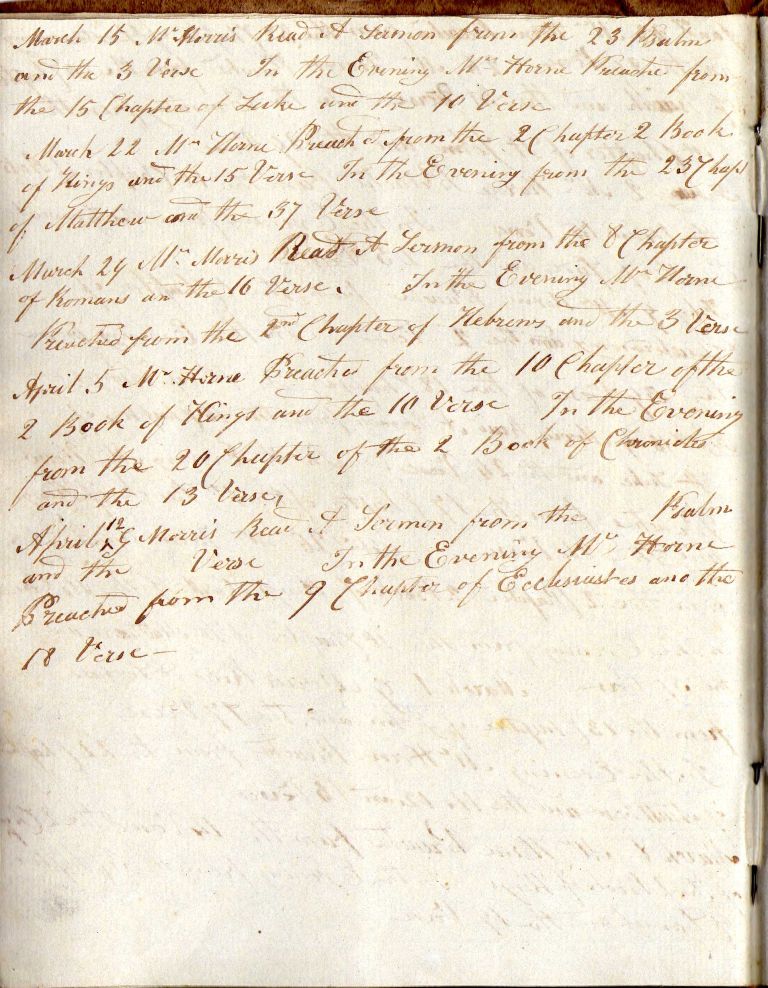 March 15 Mr Morris Read A Sermon from the 23 Psalm
and the 3 Verse In the Evening Mr Horne Preache from
the 15 Chapter of Luke and the 10 Verse
March 22 Mr Horne Preach'd from the 2 Chapter 2 Book
of Kings and the 15 Verse In the Evening from the 23 Chap
of Matthew and the 37 Verse
March 29 Mr Morris Read A Sermon from the 8 Chapter
of Romans an the 16 Verse. In the Evening Mr Horne
Preached from the 2nd Chapter of Hebrews and the 3 Verse
April 5 Mr Horne Preached from the 10 Chapter of the
2 Book of Kings and the 10 Verse In the Evening
from the 20 Chapter of the 2 Book of Chronicles
and the 13 Verse,
April 12 G Morris Read A Sermon from the Psalm
and the Verse In the Evening Mr Horne
Preached from the 9 Chapter of Ecclesiastes and the
18 Verse—